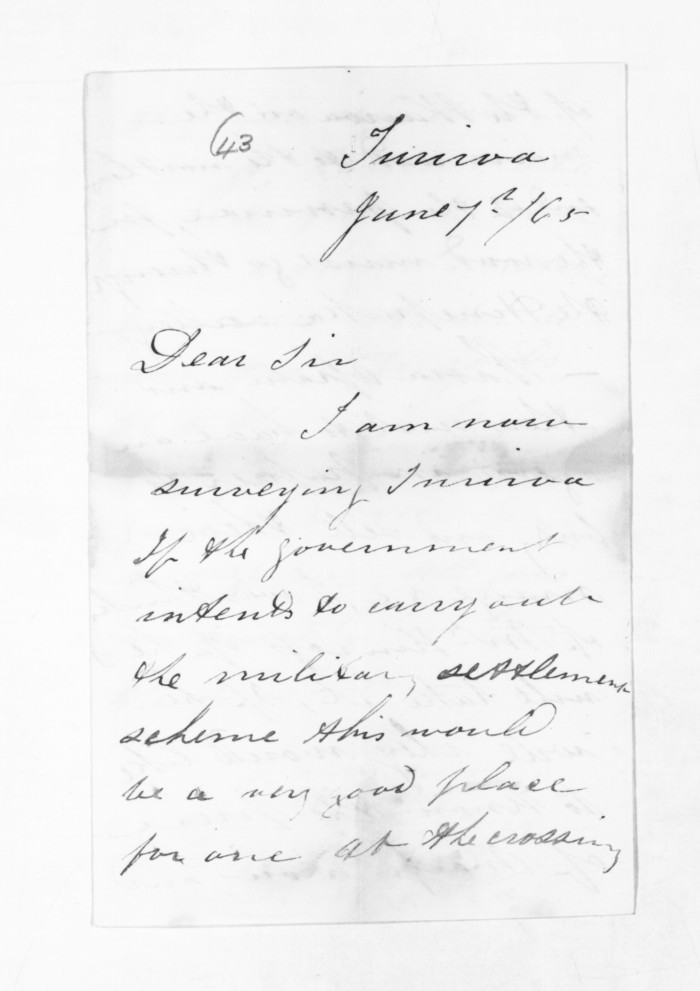 (43
Turiroa
June 7th/65
Dear Sir
I am now
surveying Turiroa
If the government
intends to carry out
the military settlement
scheme this would
be a very good place
for one at the crossing